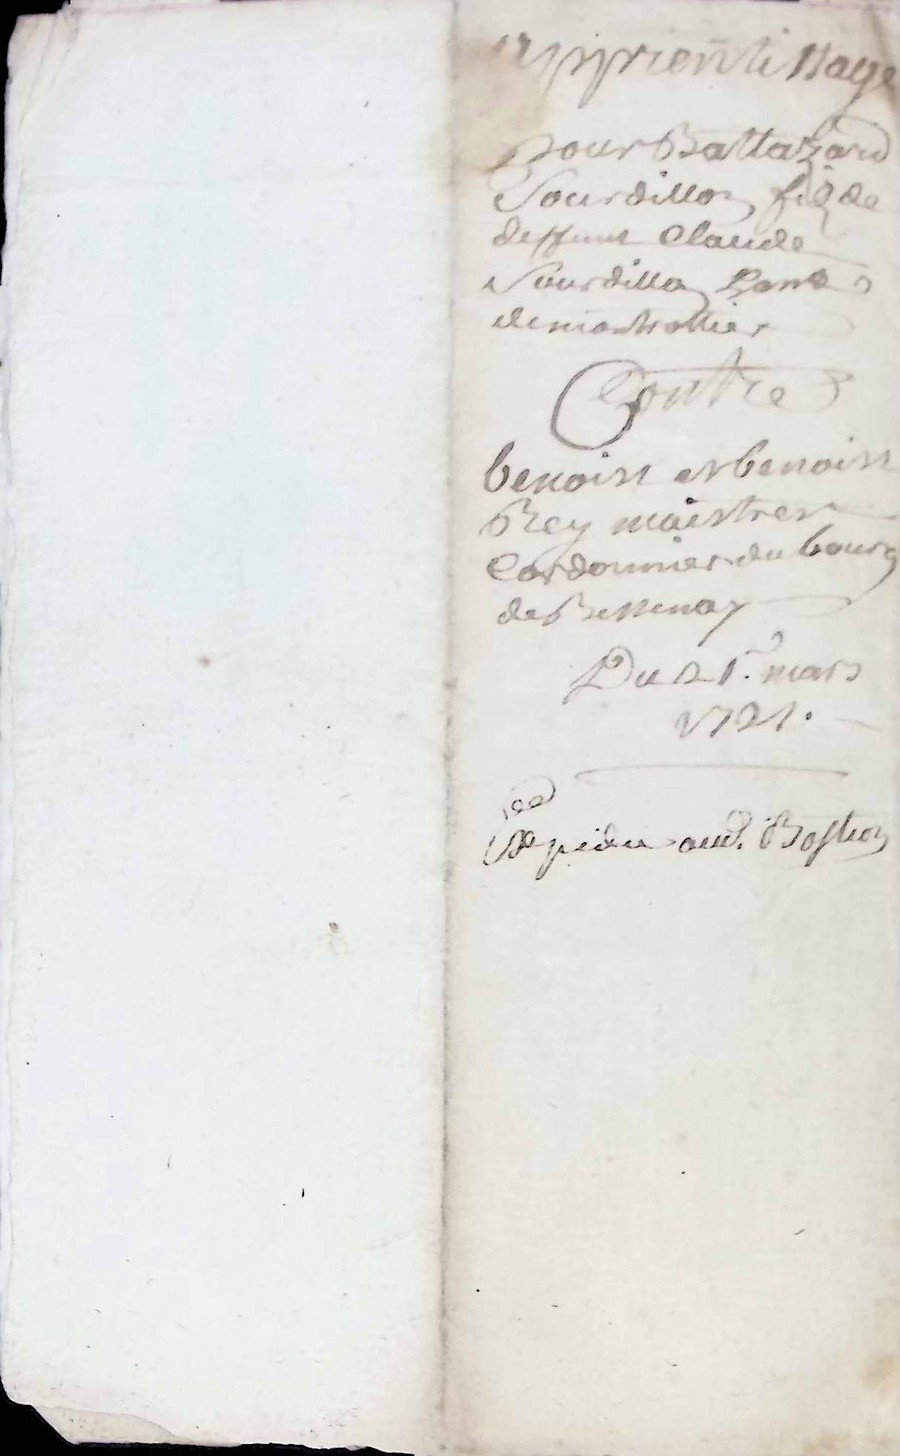 Apprentissage
pour Baltazard
Sourdillon fils de
deffunt Claude
Sourdillon
de montrottier
Contre
benoist et benoist
Rey maistres
Cordonnier du bourg
de Bessenay
Du 21e. mars
1721.
Expedié aud. Bostion